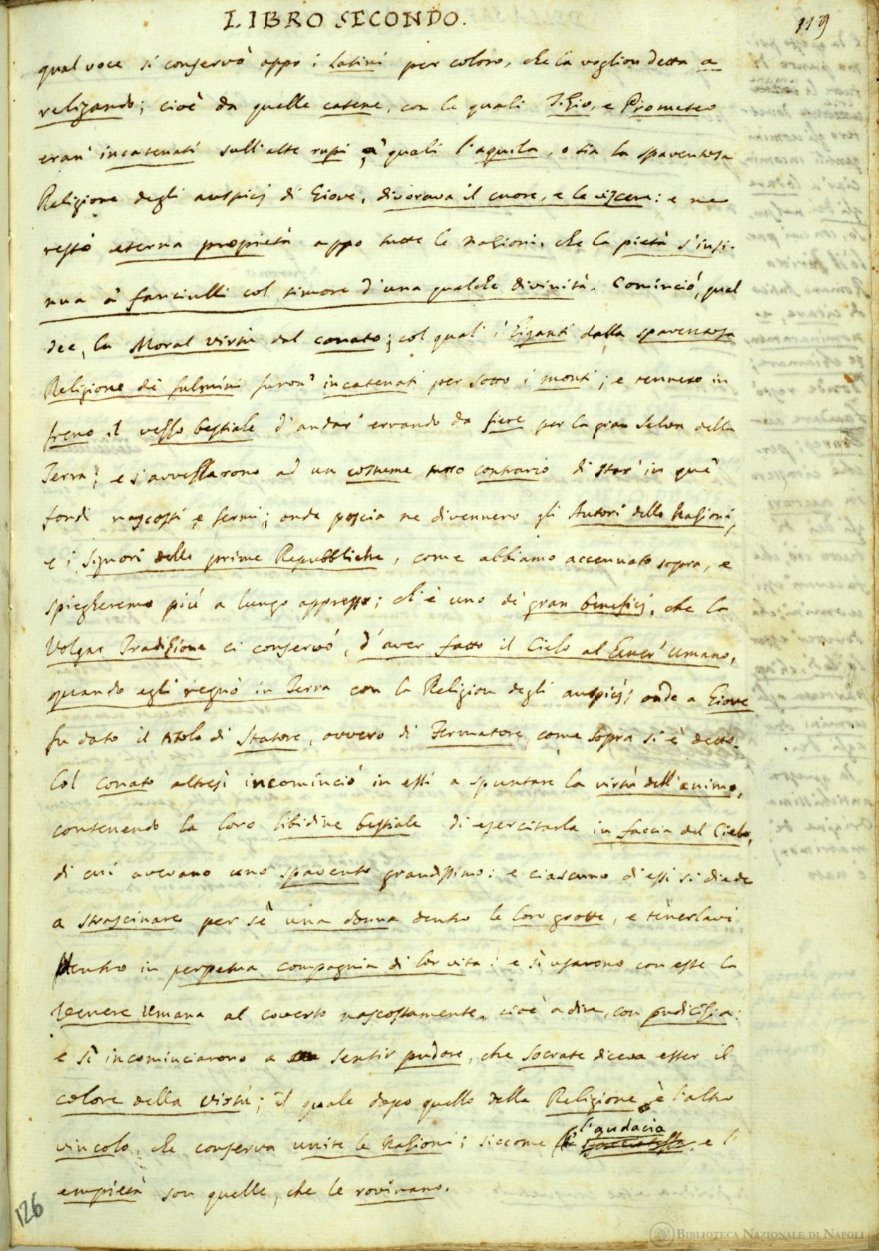 LIBRO SECONDO.
119
qual voce si conservò appo i Latini per coloro, che la voglion detta a
religando; cioè da quelle catene, con le quali Tizio, e Prometeo
eran' incatenati sull'alte rupi, a' quali l'aquila, o sia la spaventosa
Religione degli auspicj di Giove, divorava il cuore, e le viscere: e ne
restò eterna propietà appo tutte le nazioni, che la pietà s'insi-
nua a' fanciulli col timore d'una qualche divinità. Cominciò, qual
dee, la Moral virtù dal conato; col qual' i Giganti dalla spaventosa
Religione de' fulmini furon' incatenati per sotto i monti; e tennero in
freno il vezzo bestiale d'andar' errando da fiere per la gran Selva della
Terra; e s'avvezzarono ad un costume tutto contrario di star' in que'
fondi nascosti, e fermi; onde poscia ne divennero gli Autori delle Nazioni,
e i Signori delle prime Repubbliche, come abbiamo accennato sopra, e
spiegheremo più a lungo appresso; ch'è uno de' gran benefizj, che la
Volgar Tradizione ci conservò, d'aver fatto il Cielo al Gener' Umano,
quando egli regnò in Terra con la Religion degli auspicj; onde a Giove
fu dato il titolo di Statore, ovvero di Fermatore, come sopra si è detto.
Col conato altresì incominciò in essi a spuntare la virtù dell'animo,
contenendo la loro libidine bestiale di esercitarla in faccia del Cielo,
di cui avevano uno spavento grandissimo: e ciascuno d'essi si diede
a strascinare per sè una donna dentro le loro grotte, e tenerlavi
dentro in perpetua compagnia di lor vita: e sì usarono con esse la
Venere Umana al coverto nascostamente, cioè a dire, con pudicizia:
e sì incominciarono a sentir pudore, che Socrate diceva esser il
colore della virtù; il quale dopo quello della Religione è l'altro
vincolo, che conserva unite le Nazioni; siccome l'audacia e l'
empietà son quelle, che le rovinano.
126
BIBLIOTECA NAZIONALE DI NAPOLI